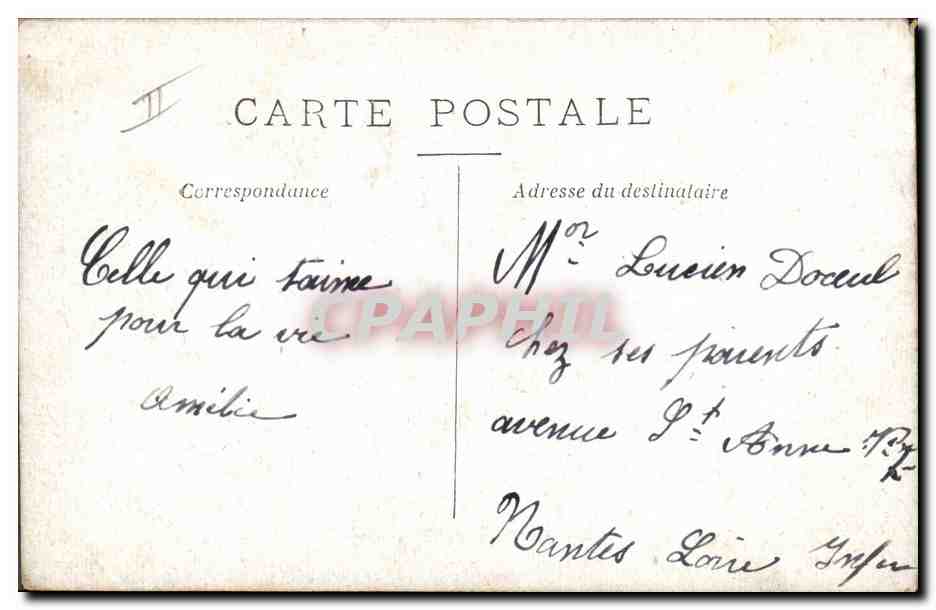 II
CARTE POSTALE
Correspondance
Celle qui t'aime
pour la vie
Amélie
Adresse du destinataire
Mor Lucien Doceul
chez ses parents
avenue St Anne
Nantes Loire Infre
CPAPHIL